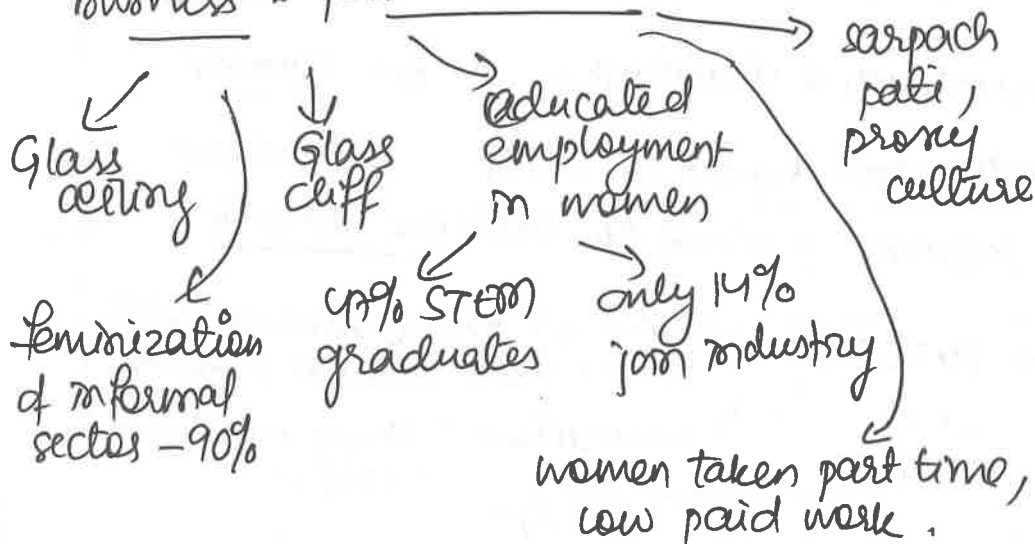 sarpach
pati,
proxy
culture
Glass
ceiling
Glass
cliff
educated
employment
in women
feminization
of informal
sector - 90%
47% STEM
graduates
only 14%
join industry
women taken part time,
low paid work.